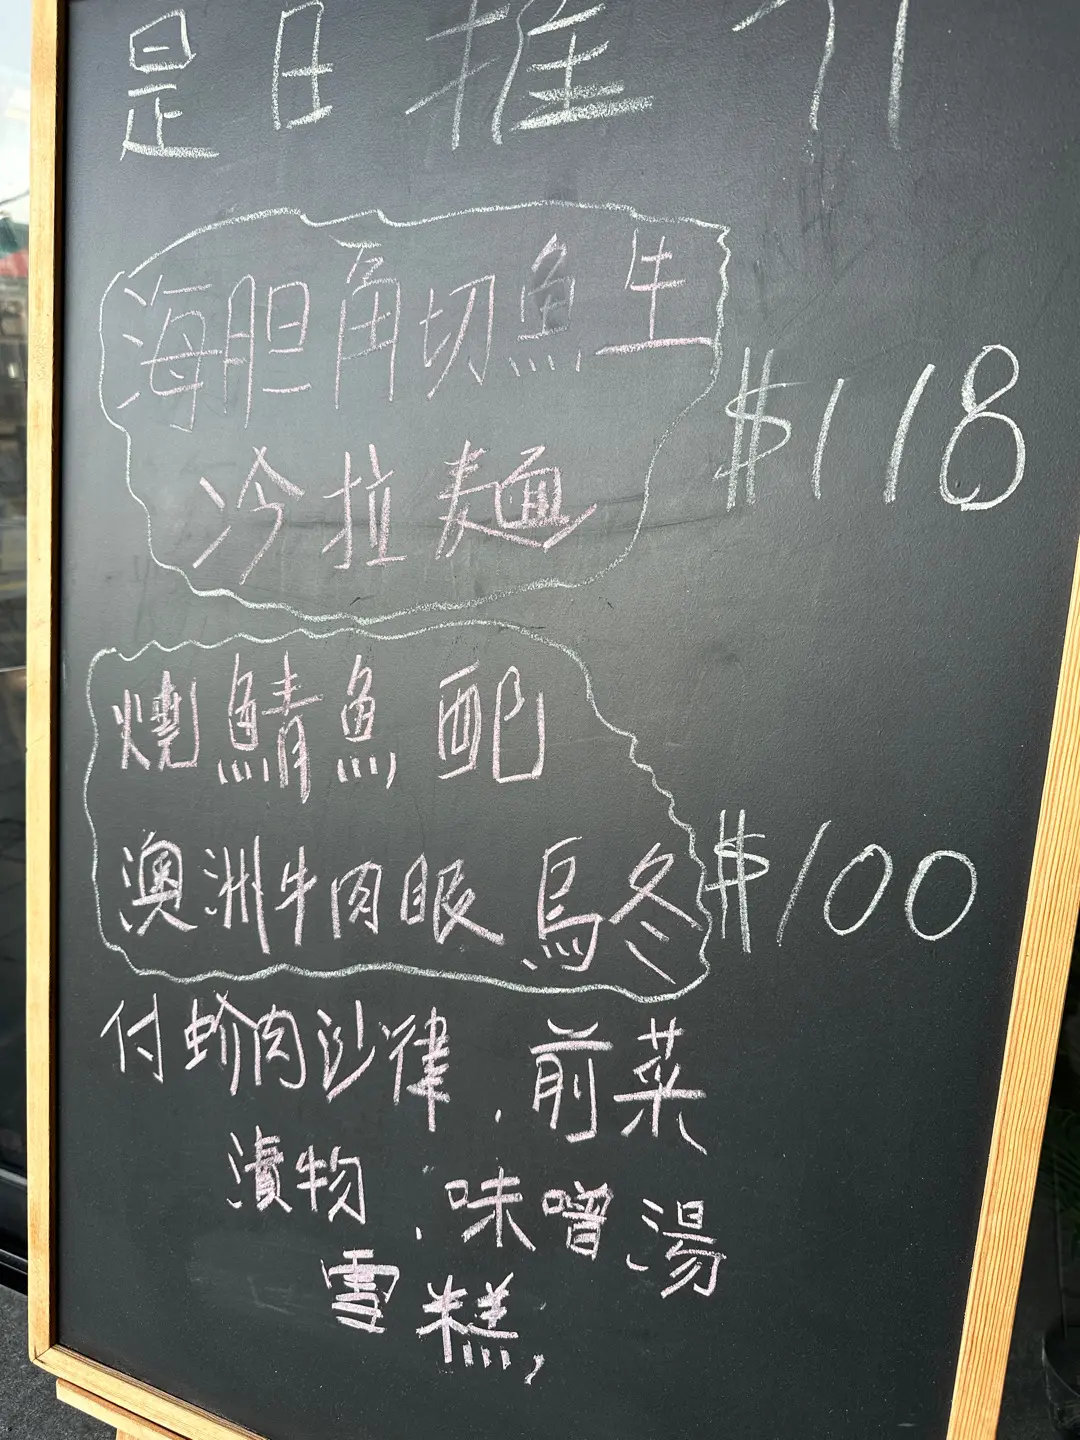 是日推介
海胆角切魚生
冷拉麵
$118
燒鯖魚配
澳洲牛肉眼烏冬
$100
付蚧肉沙律.前菜
漬物.味噌湯
雪糕,